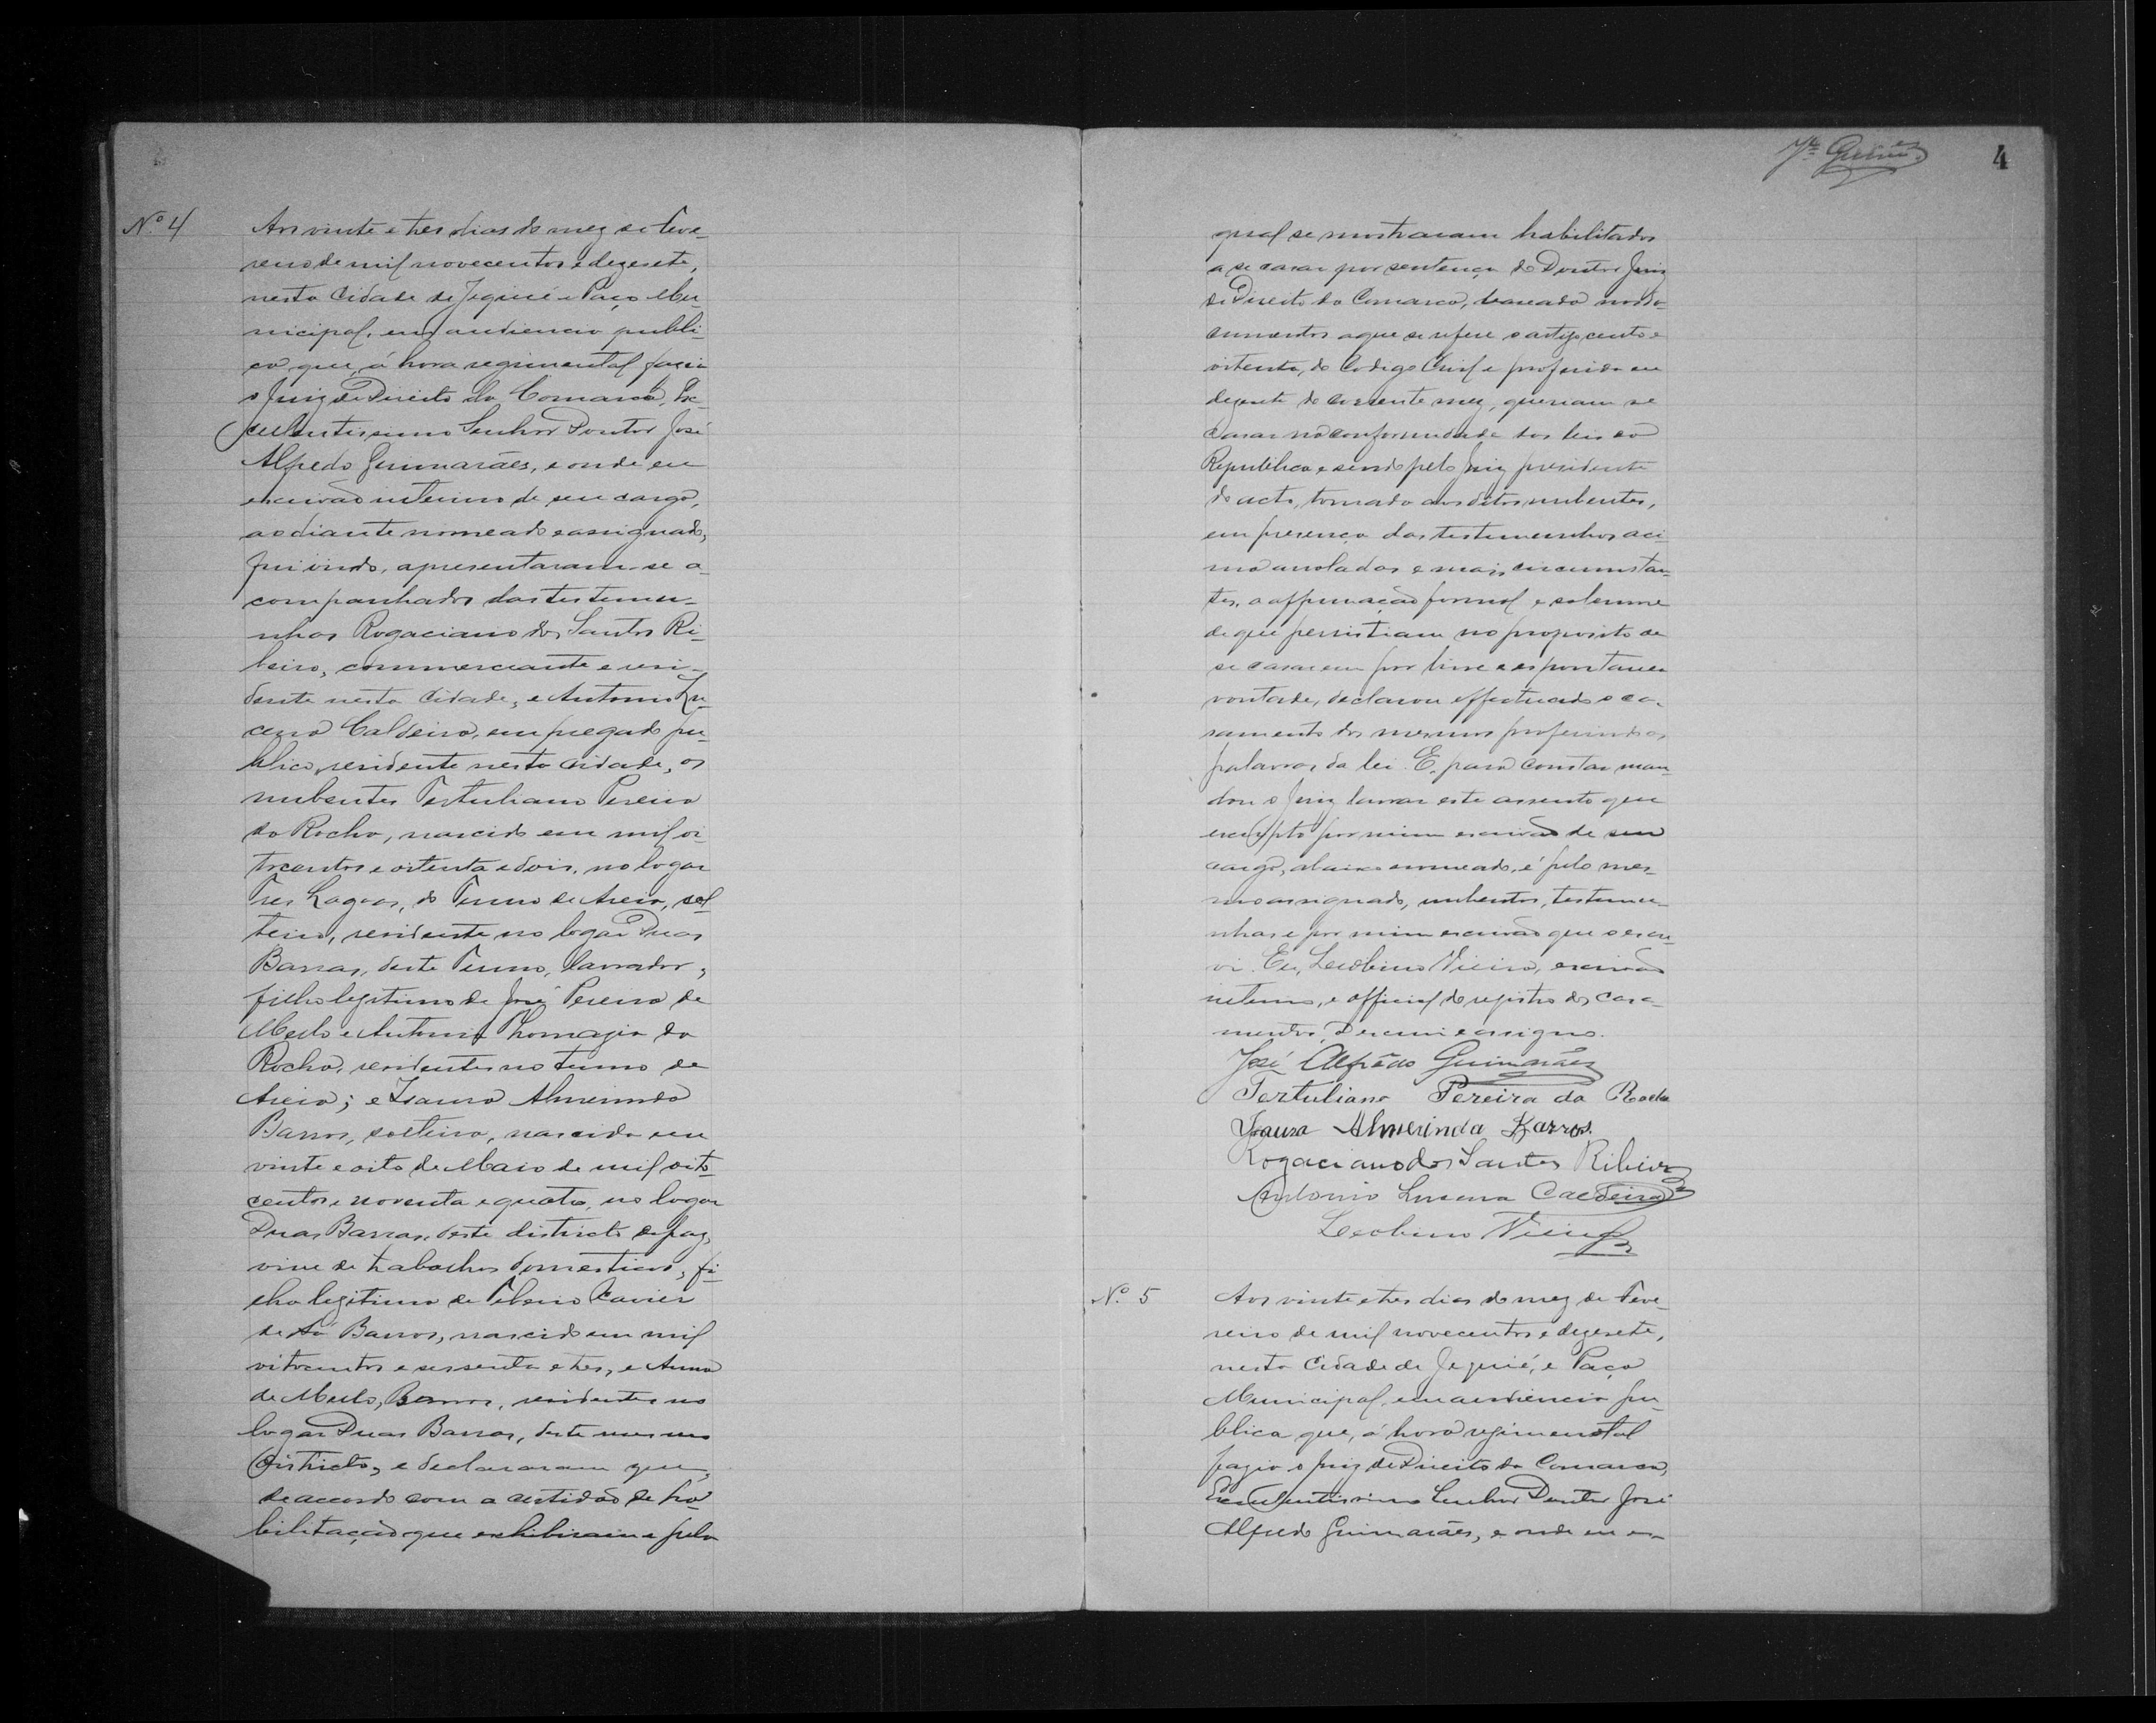 Nº 4
Aos vinte e tres dias do mez de Feve-
reiro de mil novecentos e dezesete,
nesta Cidade de Jequié e Paço Mu-
nicipal, em audiencia publi-
ca que, á hora regimental fazia
o Juiz de Direito da Comarca, Ex-
cellentissimo Senhor Doutor José
Alfredo Guimarães, e onde eu
escrivão interino de seu cargo,
ao diante nomeado e assignado,
fui vindo, apresentaram-se a-
companhados das testemu-
nhas Rogaciano dos Santos Ri-
beiro, commerciante e resi-
dente nesta Cidade, e Antonio Lu-
cena Caldeira, empregado pu-
blico, residente nesta cidade, os
nubentes Tertuliano Pereira
da Rocha, nascido em mil oi-
tocentos e oitenta e dois, no logar
Tres Lagoas, do Termo de Areia, sol-
teiro, residente no logar Duas
Barras, deste Termo, lavrador,
filho legitimo de José Pereira de
Mello e Antonia Thomazia da
Rocha, residentes no termo de
Areia; e Isaura Almerinda
Barros, solteira, nascida em
vinte e oito de Maio de mil oito-
centos e noventa e quatro, no logar
Duas Barras, deste districto de paz,
vive de trabalhos domesticos, fi-
lha legitima de Tiberio Xavier
de Sá Barros, nascido em mil
oitocentos e sessenta e tres, e Anna
de Mello Barros, residentes no
logar Duas Barras, deste mesmo
Districto, e declararam que,
de accordo com a certidão de ha-
bilitação que exhibiram e pela
Jé Guimes
4
qual se mostraram habilitados
a se casar por sentença do Doutor Juiz
de Direito da Comarca, baseada nos do-
cumentos a que se refere o artigo cento e
oitenta, do Codigo Civil e proferida em
dezesete do corrente mez, queriam se
casar na conformidade das leis da
Republica e sendo pelo Juiz presidente
do acto, tomado aos ditos nubentes,
em presença das testemunhas aci-
ma arroladas e mais circumstan-
tes, a affirmação formal e solemne
de que persistiam no proposito de
se casarem por livre e espontanea
vontade, declarou effectuado o ca-
samento dos mesmos proferindo as
palavras da lei. E, para constar man-
dou o Juiz lavrar este assento que
escripto por mim escrivão de seu
cargo, abaixo nomeado, é pelo mes-
mo assignado, nubentes, testemu-
nhas e por mim escrivão que o escre-
vi. Eu, Leobino Vieira, escrivão
interino, e official do registro dos casa-
mentos, o escrevi e assigno.
José Alfrêdo Guimarães
Tertuliano Pereira da Rocha
Isaura Almerinda Barros.
Rogaciano dos Santos Ribeiro
Antonio Lucena Caldeira
Leobino Vieira
Nº 5
Aos vinte e tres dias do mez de Feve-
reiro de mil novecentos e dezesete,
nesta Cidade de Jequié, e Paço
Municipal, em audiencia pu-
blica que, á hora regimental
fazia o Juiz de Direito da Comarca,
Excellentissimo Senhor Doutor José
Alfredo Guimarães, e onde eu es-